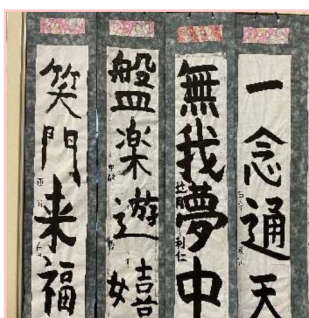 一念通天
無我夢中
盤楽遊嬉
笑門来福